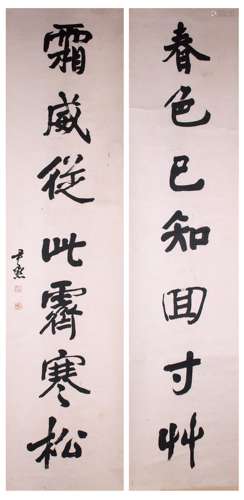 春色已知回寸艸
霜威從此霽寒松
尹默